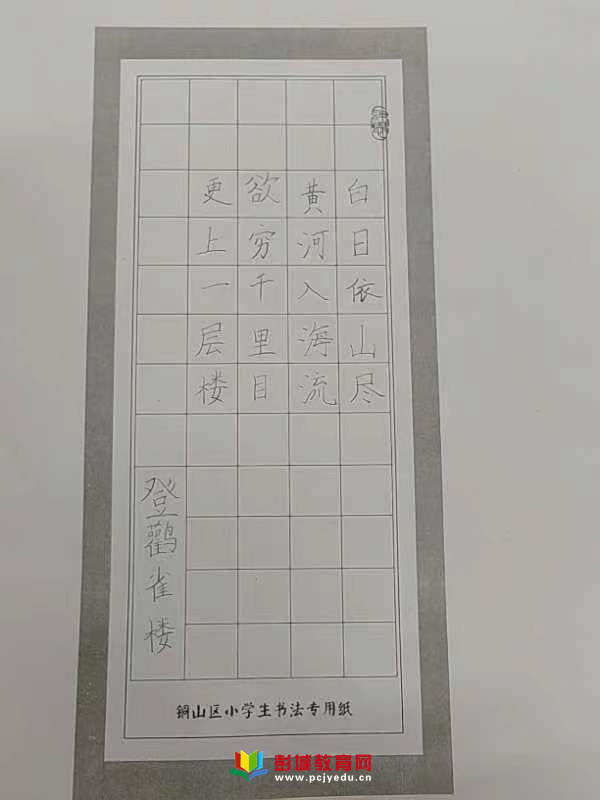 白日依山尽
黄河入海流
欲穷千里目
更上一层楼
登鹳雀楼
铜山区小学生书法专用纸
彭城教育网
www.pcjyedu.cn